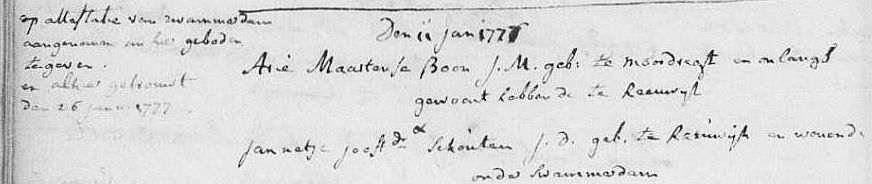 op attestatie van swammerdam
aangenomen om hier geboden
te geven.
en alhier getrouwt
den 26 janu: 1777.
Den 11 Jan 1777
Arie Maartense Boon J. M. geb: te Moordregt en onlangs
gewoont hebbende te Reeuwijk
&
Jannetje Joost dr Schouten J. d. geb. te Reeuwijk en wonend
onder Swammerdam